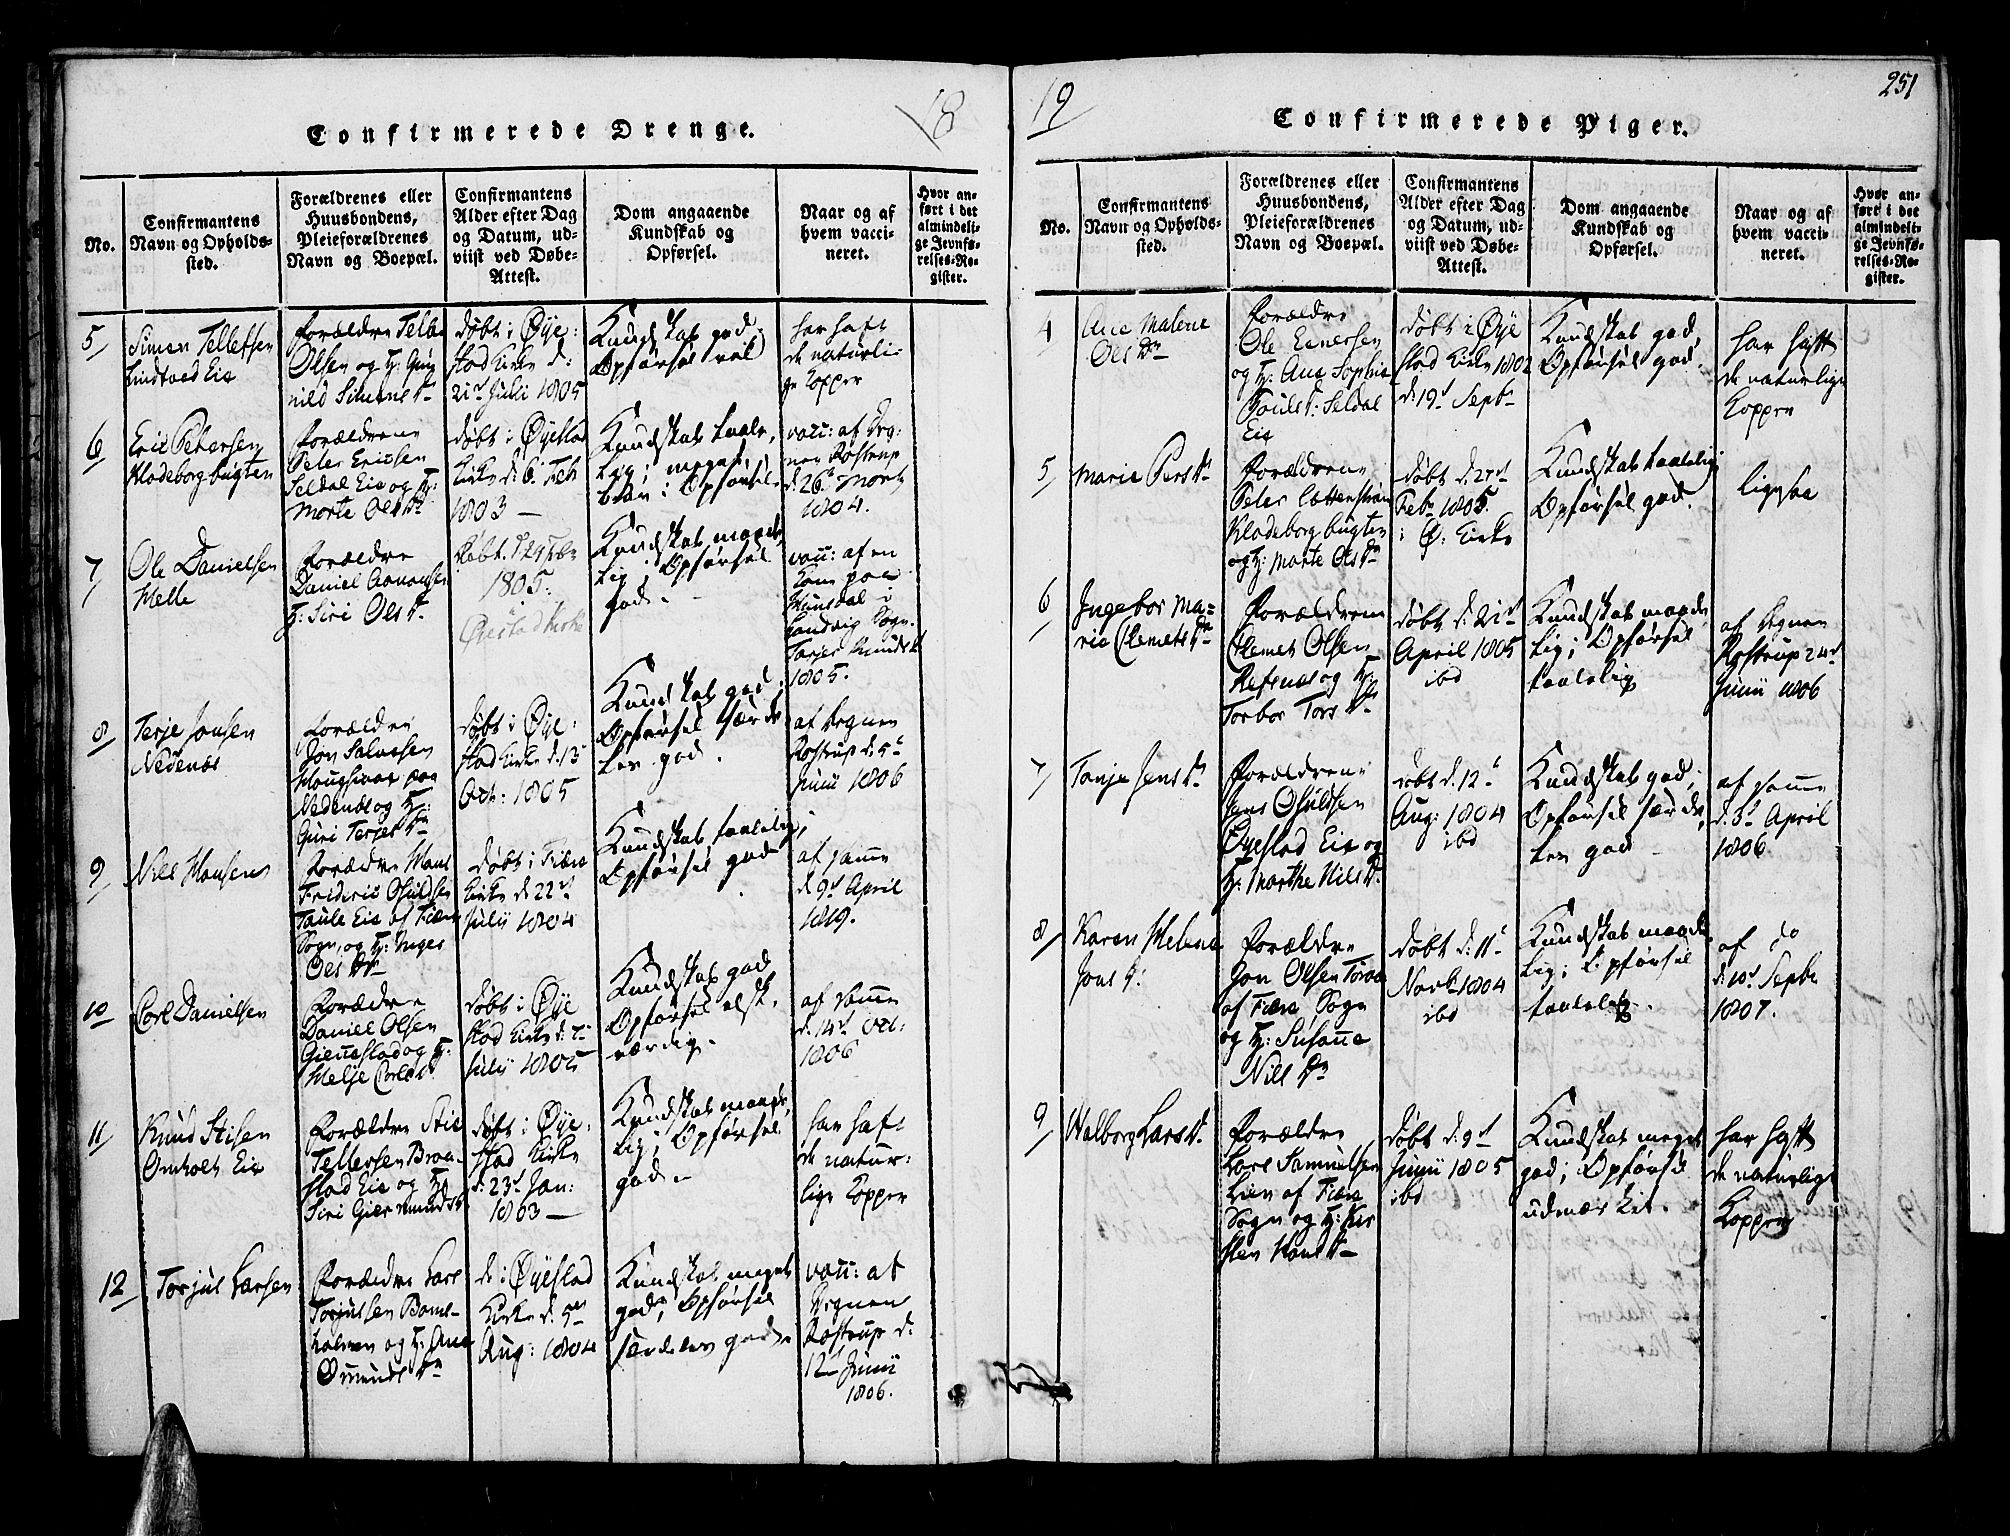 18
Confirmerede Drenge.
No.
Confirmantens
Navn og Opholds-
sted.
Forældrenes eller
Huusbondens,
Pleieforældrenes
Navn og Boepæl.
Confirmantens
Alder efter Dag
og Datum, ud-
viist ved Døbe-
Attest.
Dom angaaende
Kundskab og
Opførsel.
Naar og af
hvem vacci-
neret.
Hvor an-
ført i det
almindeli-
ge Jevnfø-
relses-Re-
gister.
5
Simon Tellefsen
Lindtved Eie
Forældre Telle
Olsen og H: Gun
nild Simons Dr
døbt i Øye:
stad Kirke d:
21d Juli 1805
Kundskab god.
Opførsel vel
har haft
de naturli-
ge Kopper
6
Eric Petersen
Klodeborgbugten
Forældrene
Peter Ericsen
Seldal Eie og H:
Morte Ols Dr
døbt i Øyestad
Kirke d: 6 Feb
1803 —
Kundskab taale,
lig; meget
brav i Opførsel
vacc: af Deg:
nen Rostrup
d: 26 Marty
1804.
7
Ole Danielsen
Helle
Forældre
Daniel Aanonsen
H: Siri Ols Dr
Døbt. d 29 Febr
1805.
Øiestad Kirke
Kundskab maade,
lig; Opførsel
god.
vacc: af en
Kone paa
Hunsdal i
Landvig Sogn.
Torjer Knuds D
1805.
8
Terje Jonsen
Nedenæs
Forældre
Jon Salvesen
Nedenæs og H:
Guri Terjes Dr
døbt i Øye:
stad Kirke d. 13
Oct: 1805
Kundskab god;
Opførsel særde
les god.
af Degnen
Rostrup d: 5t
Junii 1806
9
Niels Hansen
Forældre Hans
Frideric Osuldsen
Taule Eie af Fiære
Sogn, og H: Inger
Ols Dr
døbt i Fiære
Kirke d: 22d
Julii 1804
Kundskab taalelig;
Opførsel god
af samme
d: 9d April
1819.
10
Carl Danielsen
Forældre
Daniel Olsen
Giennestad og H:
Helje Carls D
døbt i Øye
stad Kirke d: 7
Julii 1805
Kundskab god
Opførsel elsk,
værdig.
af samme
d: 14d Oct:
1806
11
Knud Stisen
Omholt Eie
Forældre Stie
Tellefsen Braa-
stad Eie og H:
Siri Giermunds D
døbt i Øye:
stad Kirke
d: 23d Jan:
1803 —
Kundskab maade,
lig; Opførsel
god.
har haft
de natur:
lige Kopper
12
Torjul Larsen
Forældre Lars
Torjulsen Boms-
holmen og H: Ane
Omunds Dr
d: i Øyestad
Kirke d: 5te
Aug: 1804
Kundskab meget
god; Opførsel
særdeles god.
vacc: af
Degnen
Rostrup d:
12te Junii
1806.
19
251
Confirmerede Piger.
No.
Confirmantens
Navn og Opholds-
sted.
Forældrenes eller
Huusbondens,
Pleieforældrenes
Navn og Boepæl.
Confirmantens
Alder efter Dag
og Datum, ud-
viist ved Døbe-
Attest.
Dom angaaende
Kundskab og
Opførsel.
Naar og af
hvem vacci-
neret.
Hvor an-
ført i det
almindeli-
ge Jevnfø-
relses-Re-
gister.
4
Ane Malene
Ols Dr
Forældre
Ole Evensen
og H: Ane Sophie
Pouls D: Seldal
Eie
døbt i Øye
stad Kirke 1802
d: 19d Septr
Kundskab god,
Opførsel god.
har haft
de naturlige
Kopper
5
Marie Pers Dr
Forældrene
Peter
Klodeborgbugten
og H: Morte Ols Dr
døbt d: 27d
Febr 1805.
i Ø. Kirke
Kundskab taalelig
Opførsel god.
ligesaa
6
Ingebor Ma-
rie Clemets Dr
Forældrene
Clemet Olsen
Refsnes og H:
Torbor Tors Dr
døbt d: 21d
April 1805
ibd
Kundskab maade,
lig; Opførsel
taalelig
af Degnen
Rostrup 24d
Junii 1806
7
Tonje Jens Dr
Forældrene
Jens Osuldsen
Øyestad Eie og
H: Morthe Nils D.
døbt d: 12t
Aug: 1804
ibd
Kundskab god;
Opførsel særde,
les god
af samme
d: 3d April
1806
8
Karen Helene
Jons D:
Forældre
Jon Olsen
af Fiære Sogn
og H: Susanne
Nils Dr
døbt d: 11t
Novb 1804
ibd
Kundskab maade,
lig; Opførsel
taalelig.
af do
d: 10d Septbr
1807.
9
Walborg Lars D.
Forældre
Lars Samuelsen
Lien af Fiære
Sogn og H: Kir
sten Hans Dr
døbt d: 9d
Junii 1805
ibd
Kundskab meget
god; Opførsel
udmærket.
har haft
de naturlige
Kopper